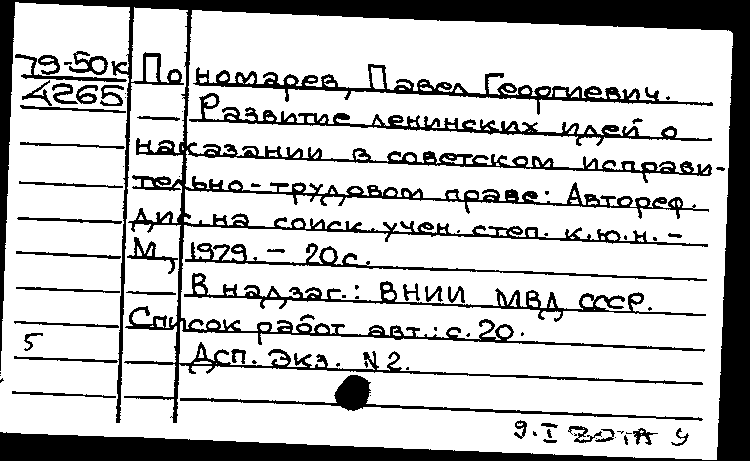 79-50к
4265
Пономарев, Павел Георгиевич.
Развитие ленинских идей о
наказании в советском исправи-
тельно-трудовом праве: Автореф.
дис. на соиск. учен. степ. к.ю.н. –
М., 1979. – 20с.
В надзаг.: ВНИИ МВД СССР.
Список работ авт.: с.20.
5
Дсп. Экз. N2.
9.I